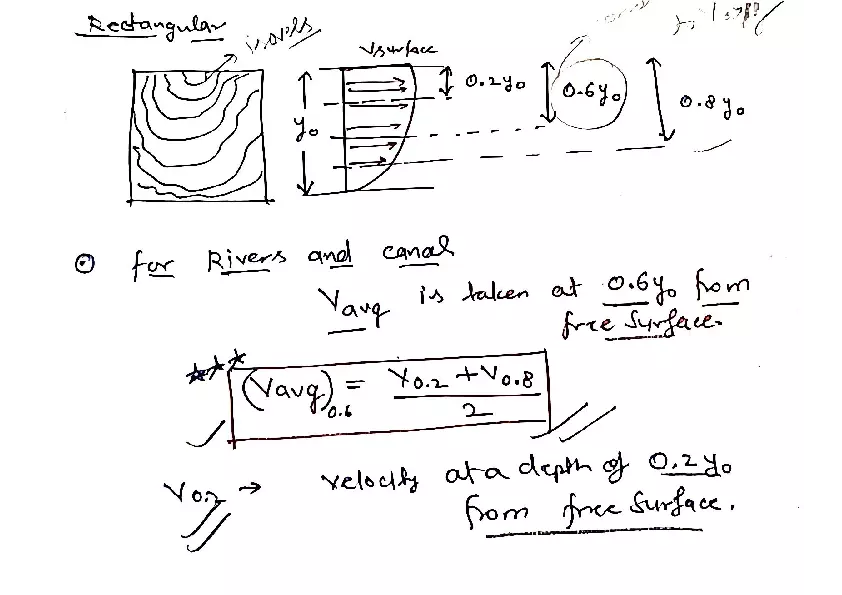 Rectangular
isovels
Vsurface
y₀
0.2y₀
0.6y₀
0.8y₀
⊙ for Rivers and canal
Vavg is taken at 0.6y₀ from
free surface.
(Vavg)₀.₆ = (V₀.₂ + V₀.₈) / 2
V₀.₂ → velocity at a depth of 0.2y₀
from free surface.